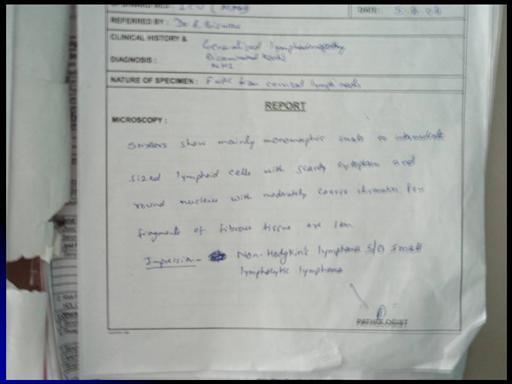 REFERRED BY : Dr. R. Biswas
CLINICAL HISTORY & Generalised lymphadenopathy
DIAGNOSIS :
NATURE OF SPECIMEN : FNAC from cervical lymph node
REPORT
MICROSCOPY :
Smears show mainly monomorphic small to intermediate
sized lymphoid cells with scanty cytoplasm and
round nucleus with moderately coarse chromatin. Few
fragments of fibrous tissue are seen
Impression - Non-Hodgkin's lymphoma S/O small
lymphocytic lymphoma
PATHOLOGIST